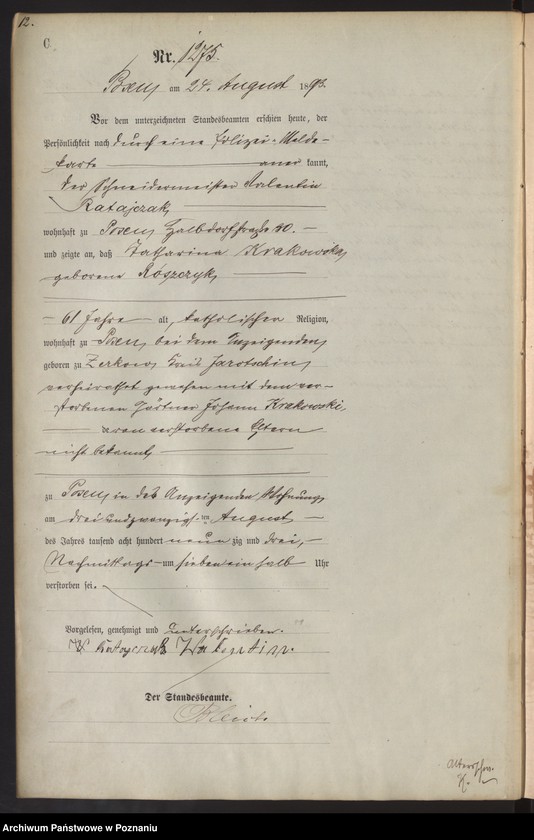 12.
C
Nr. 1275.
Posen, am 24. August 1893.
Vor dem unterzeichneten Standesbeamten erschien heute, der
Persönlichkeit nach durch eine Polizei-Melde-
karte anerkannt,
der Schneidermeister Valentin
Ratajczak,
wohnhaft zu Posen, Halbdorfstraße 40.
und zeigte an, daß Katharina Krakowska,
geborene
61 Jahre alt, katholischer Religion,
wohnhaft zu Posen, bei dem Anzeigenden,
geboren zu Zerkow, Kreis Jarotschin,
verheirathet gewesen mit dem ver-
storbenen Gärtner Johann Krakowski,
deren verstorbene Eltern
nicht bekannt,
zu Posen, in des Anzeigenden Wohnung,
am drei und zwanzigsten August
des Jahres tausend acht hundert neunzig und drei,
Nachmittags um sieben ein halb Uhr
verstorben sei.
Vorgelesen, genehmigt und unterschrieben.
Ratajczak
Der Standesbeamte.
Archiwum Państwowe w Poznaniu